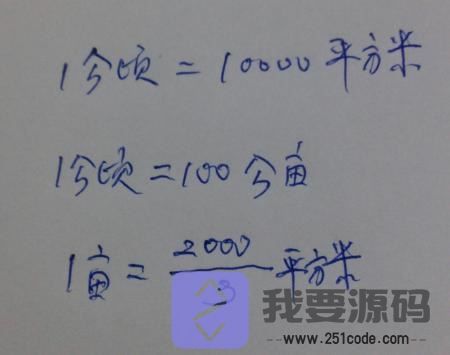 1公顷=10000平方米
1公顷=100公亩
1亩=2000/3平方米
我要源码
www.251code.com